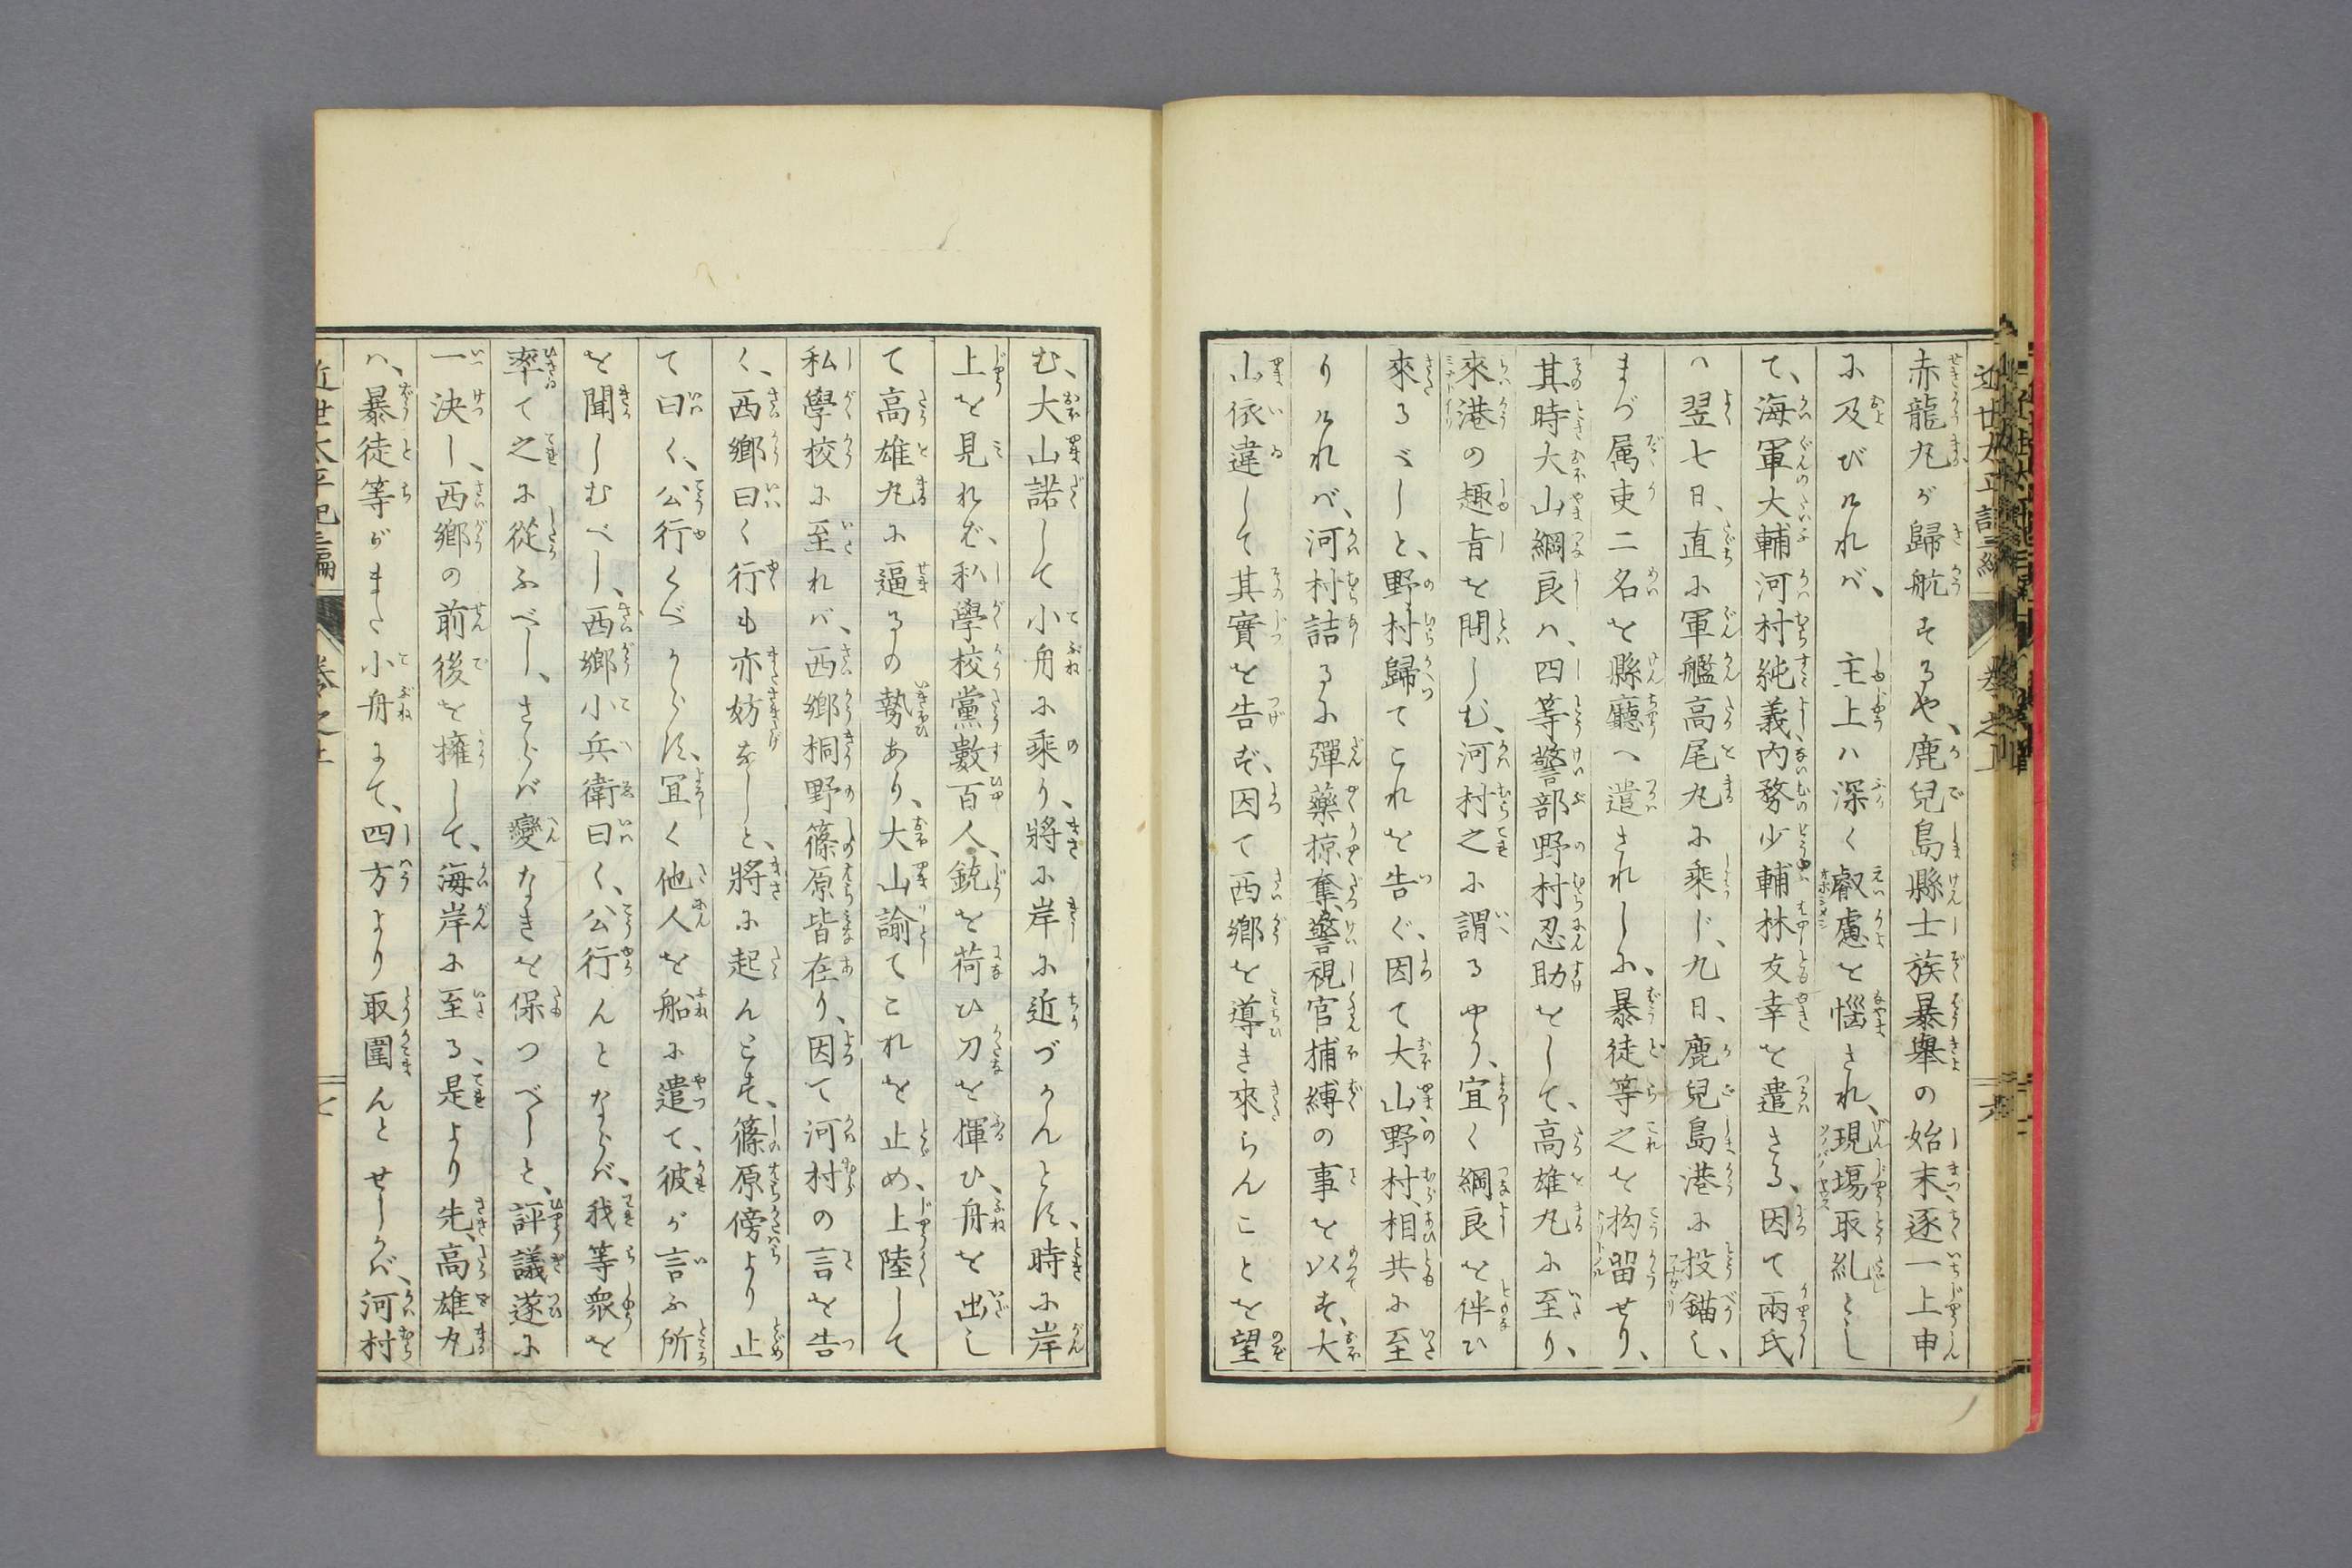 赤龍丸が歸航するや、鹿兒島縣士族暴擧の始末、逐一上申
に及びければ、　主上は深く叡慮を惱され、現塲取糺とし
て、海軍大輔河村純義、内務少輔林友幸を遣さる、因て兩氏
は翌七日、直に軍艦高尾丸に乘じ、九日、鹿兒島港に投錨し、
まづ属吏二名を縣廳へ遣されしに、暴徒等之を拘留せり、
其時大山綱良は、四等警部野村忍助をして、高雄丸に至り、
來港の趣旨を問しむ、河村之に謂るやう、宜く綱良を伴ひ
來るべしと、野村歸てこれを告ぐ、因て大山、野村、相共に至
りければ、河村詰るに彈藥掠奪、警視官捕縛の事を以す、大
山依違して其實を告ず、因て西鄕を導き來らんことを望
む、大山諾して小舟に乘り、將に岸に近づかんとす、時に岸
上を見れば、私學校黨數百人、銃を荷ひ刀を揮ひ、舟を出し
て高雄丸に逼るの勢あり、大山諭てこれを止め、上陸して
私學校に至れば、西鄕桐野篠原皆在り、因て河村の言を告
く、西鄕曰く行も亦妨なしと、將に起んとす、篠原傍より止
て曰く、公行くべからず、宜く他人を船に遣て、彼が言ふ所
を聞しむべし、西鄕小兵衛曰く、公行んとならば、我等衆を
率て之に從ふべし、さらば變なきを保つべしと、評議遂に
一決し、西鄕の前後を擁して、海岸に至る、是より先、高雄丸
は、暴徒等がまた小舟にて、四方より取圍んとせしかば、河村
近世太平記三編
卷之上
七